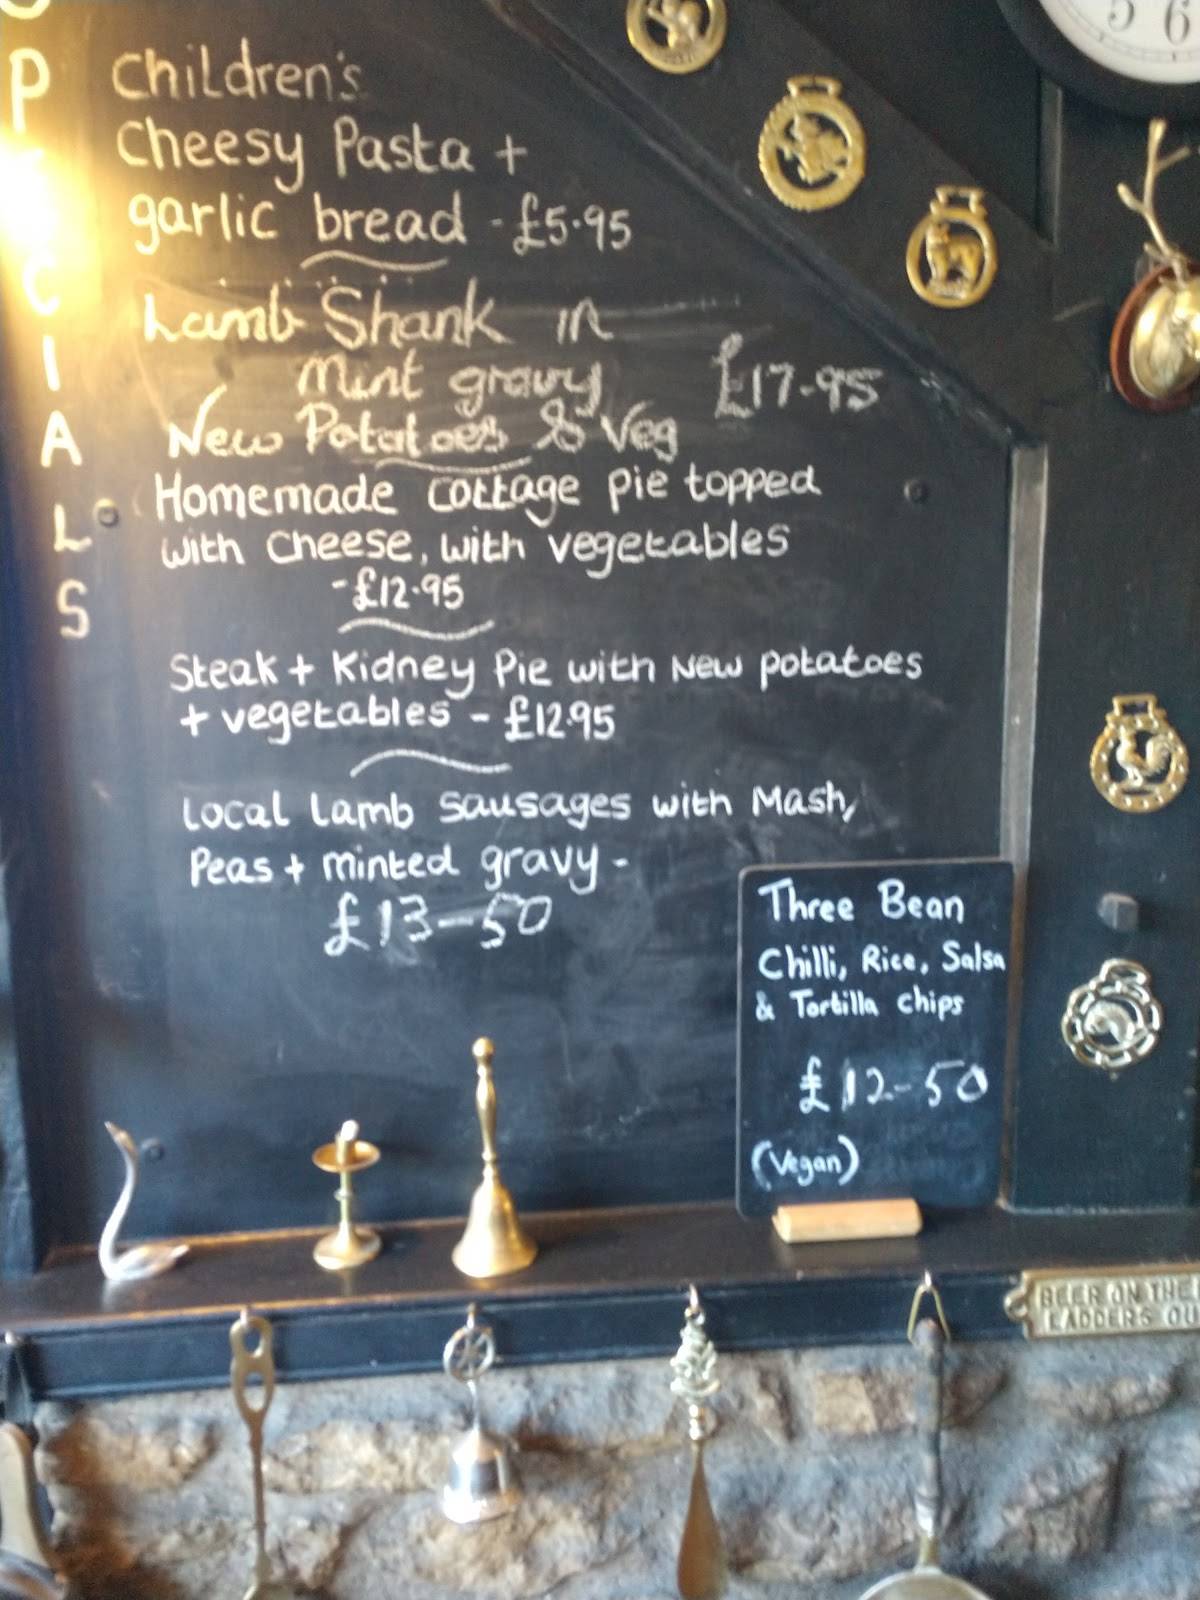 SPECIALS
Children's
Cheesy Pasta +
garlic bread - £5.95
Lamb Shank in
Mint gravy £17-95
New Potatoes & Veg
Homemade cottage pie topped
with cheese, with vegetables
- £12.95
Steak + Kidney Pie with New potatoes
+ vegetables - £12.95
Local Lamb Sausages with Mash,
Peas + minted gravy -
£13-50
Three Bean
Chilli, Rice, Salsa
& Tortilla chips
£12-50
(Vegan)
BEER ON THE
LADDERS OU
5 6